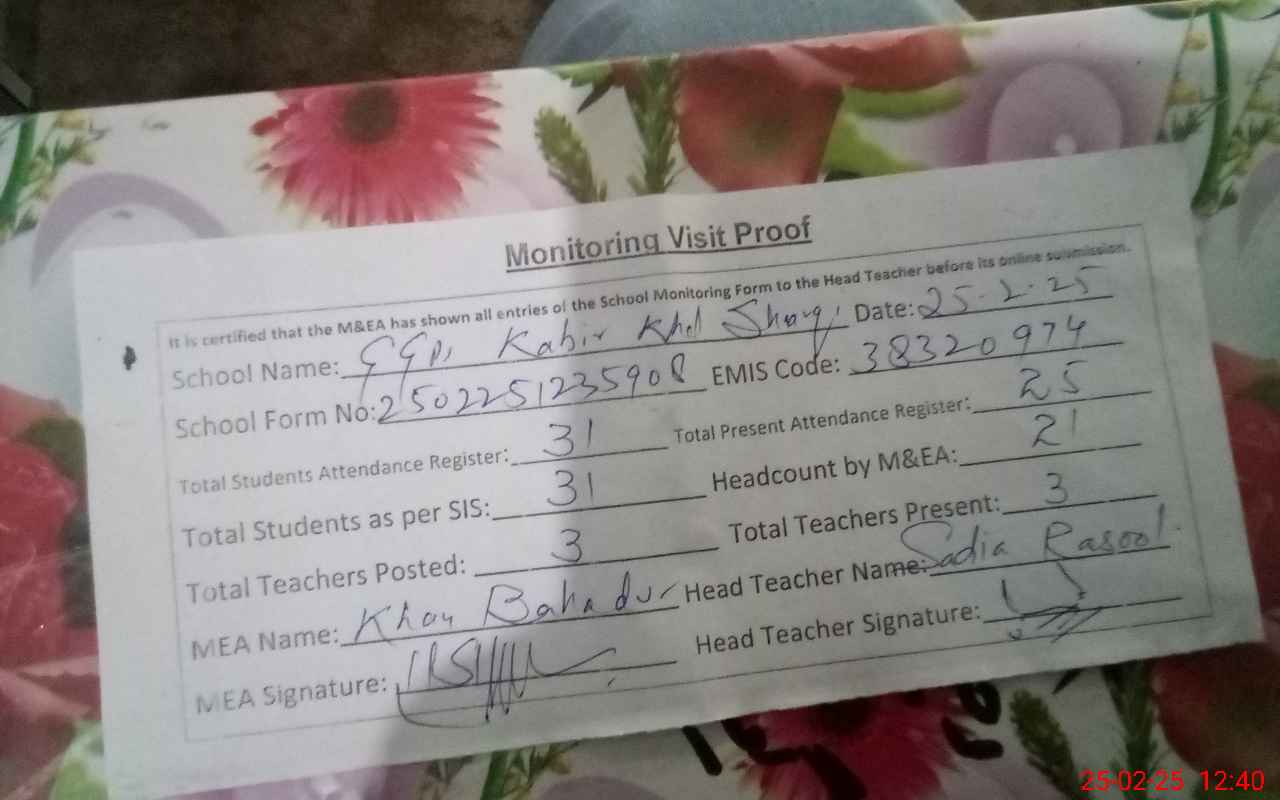 Monitoring Visit Proof
It is certified that the M&EA has shown all entries of the School Monitoring Form to the Head Teacher before its online submission.
School Name: GGPS Kabir Khel Sharqi Date: 25-2-25
School Form No: 2502251235908 EMIS Code: 38320974
Total Students Attendance Register: 31 Total Present Attendance Register: 25
Total Students as per SIS: 31 Headcount by M&EA: 21
Total Teachers Posted: 3 Total Teachers Present: 3
MEA Name: Khan Bahadur Head Teacher Name: Sadia Rasool
MEA Signature: Head Teacher Signature:
25-02-25 12:40